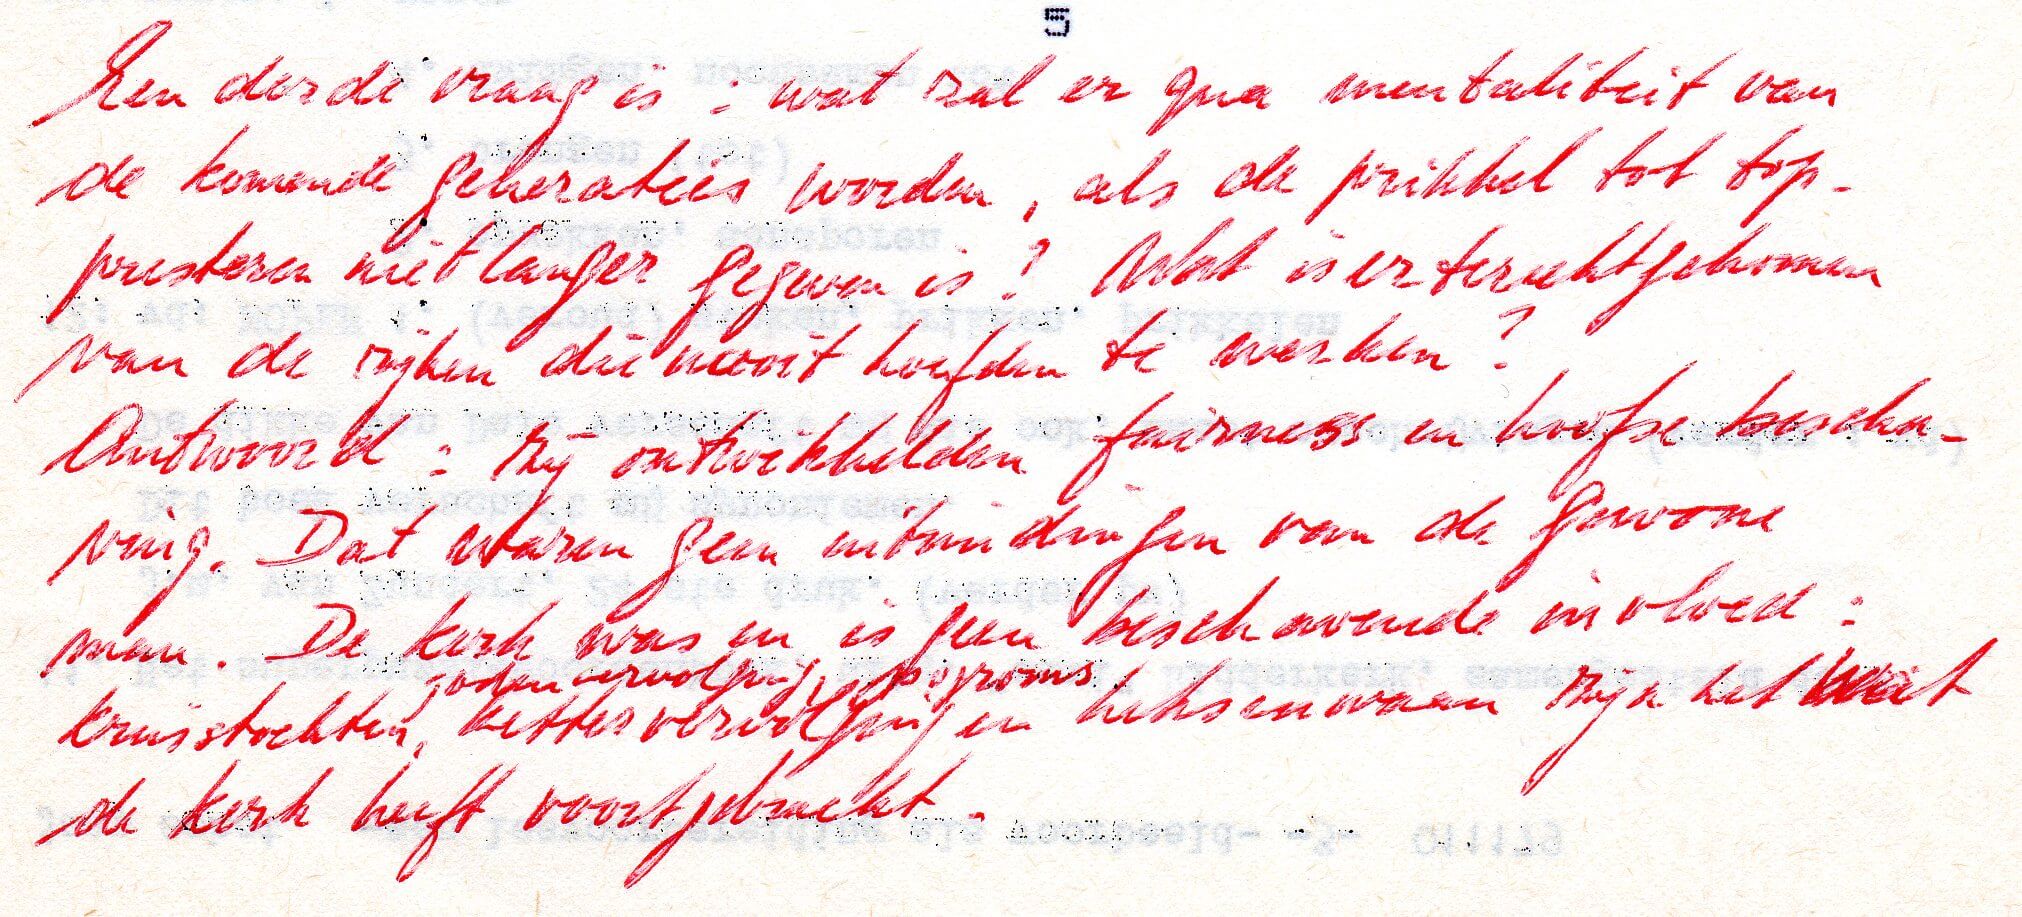 5
Een derde vraag is : wat zal er qua mentaliteit van
de komende generaties worden, als de prikkel tot top-
presteren niet langer gegeven is ? Wat is er terechtgekomen
van de rijken die nooit hoefden te werken ?
Antwoord : zij ontwikkelden fairness en hoofse bescha-
ving. Dat waren geen uitvindingen van de gewone
man. De kerk was en is geen beschavende invloed :
jodenvervolging, pogroms,
kruistochten, kettervervolging en heksenwaan zijn het
de kerk heeft voortgebracht.